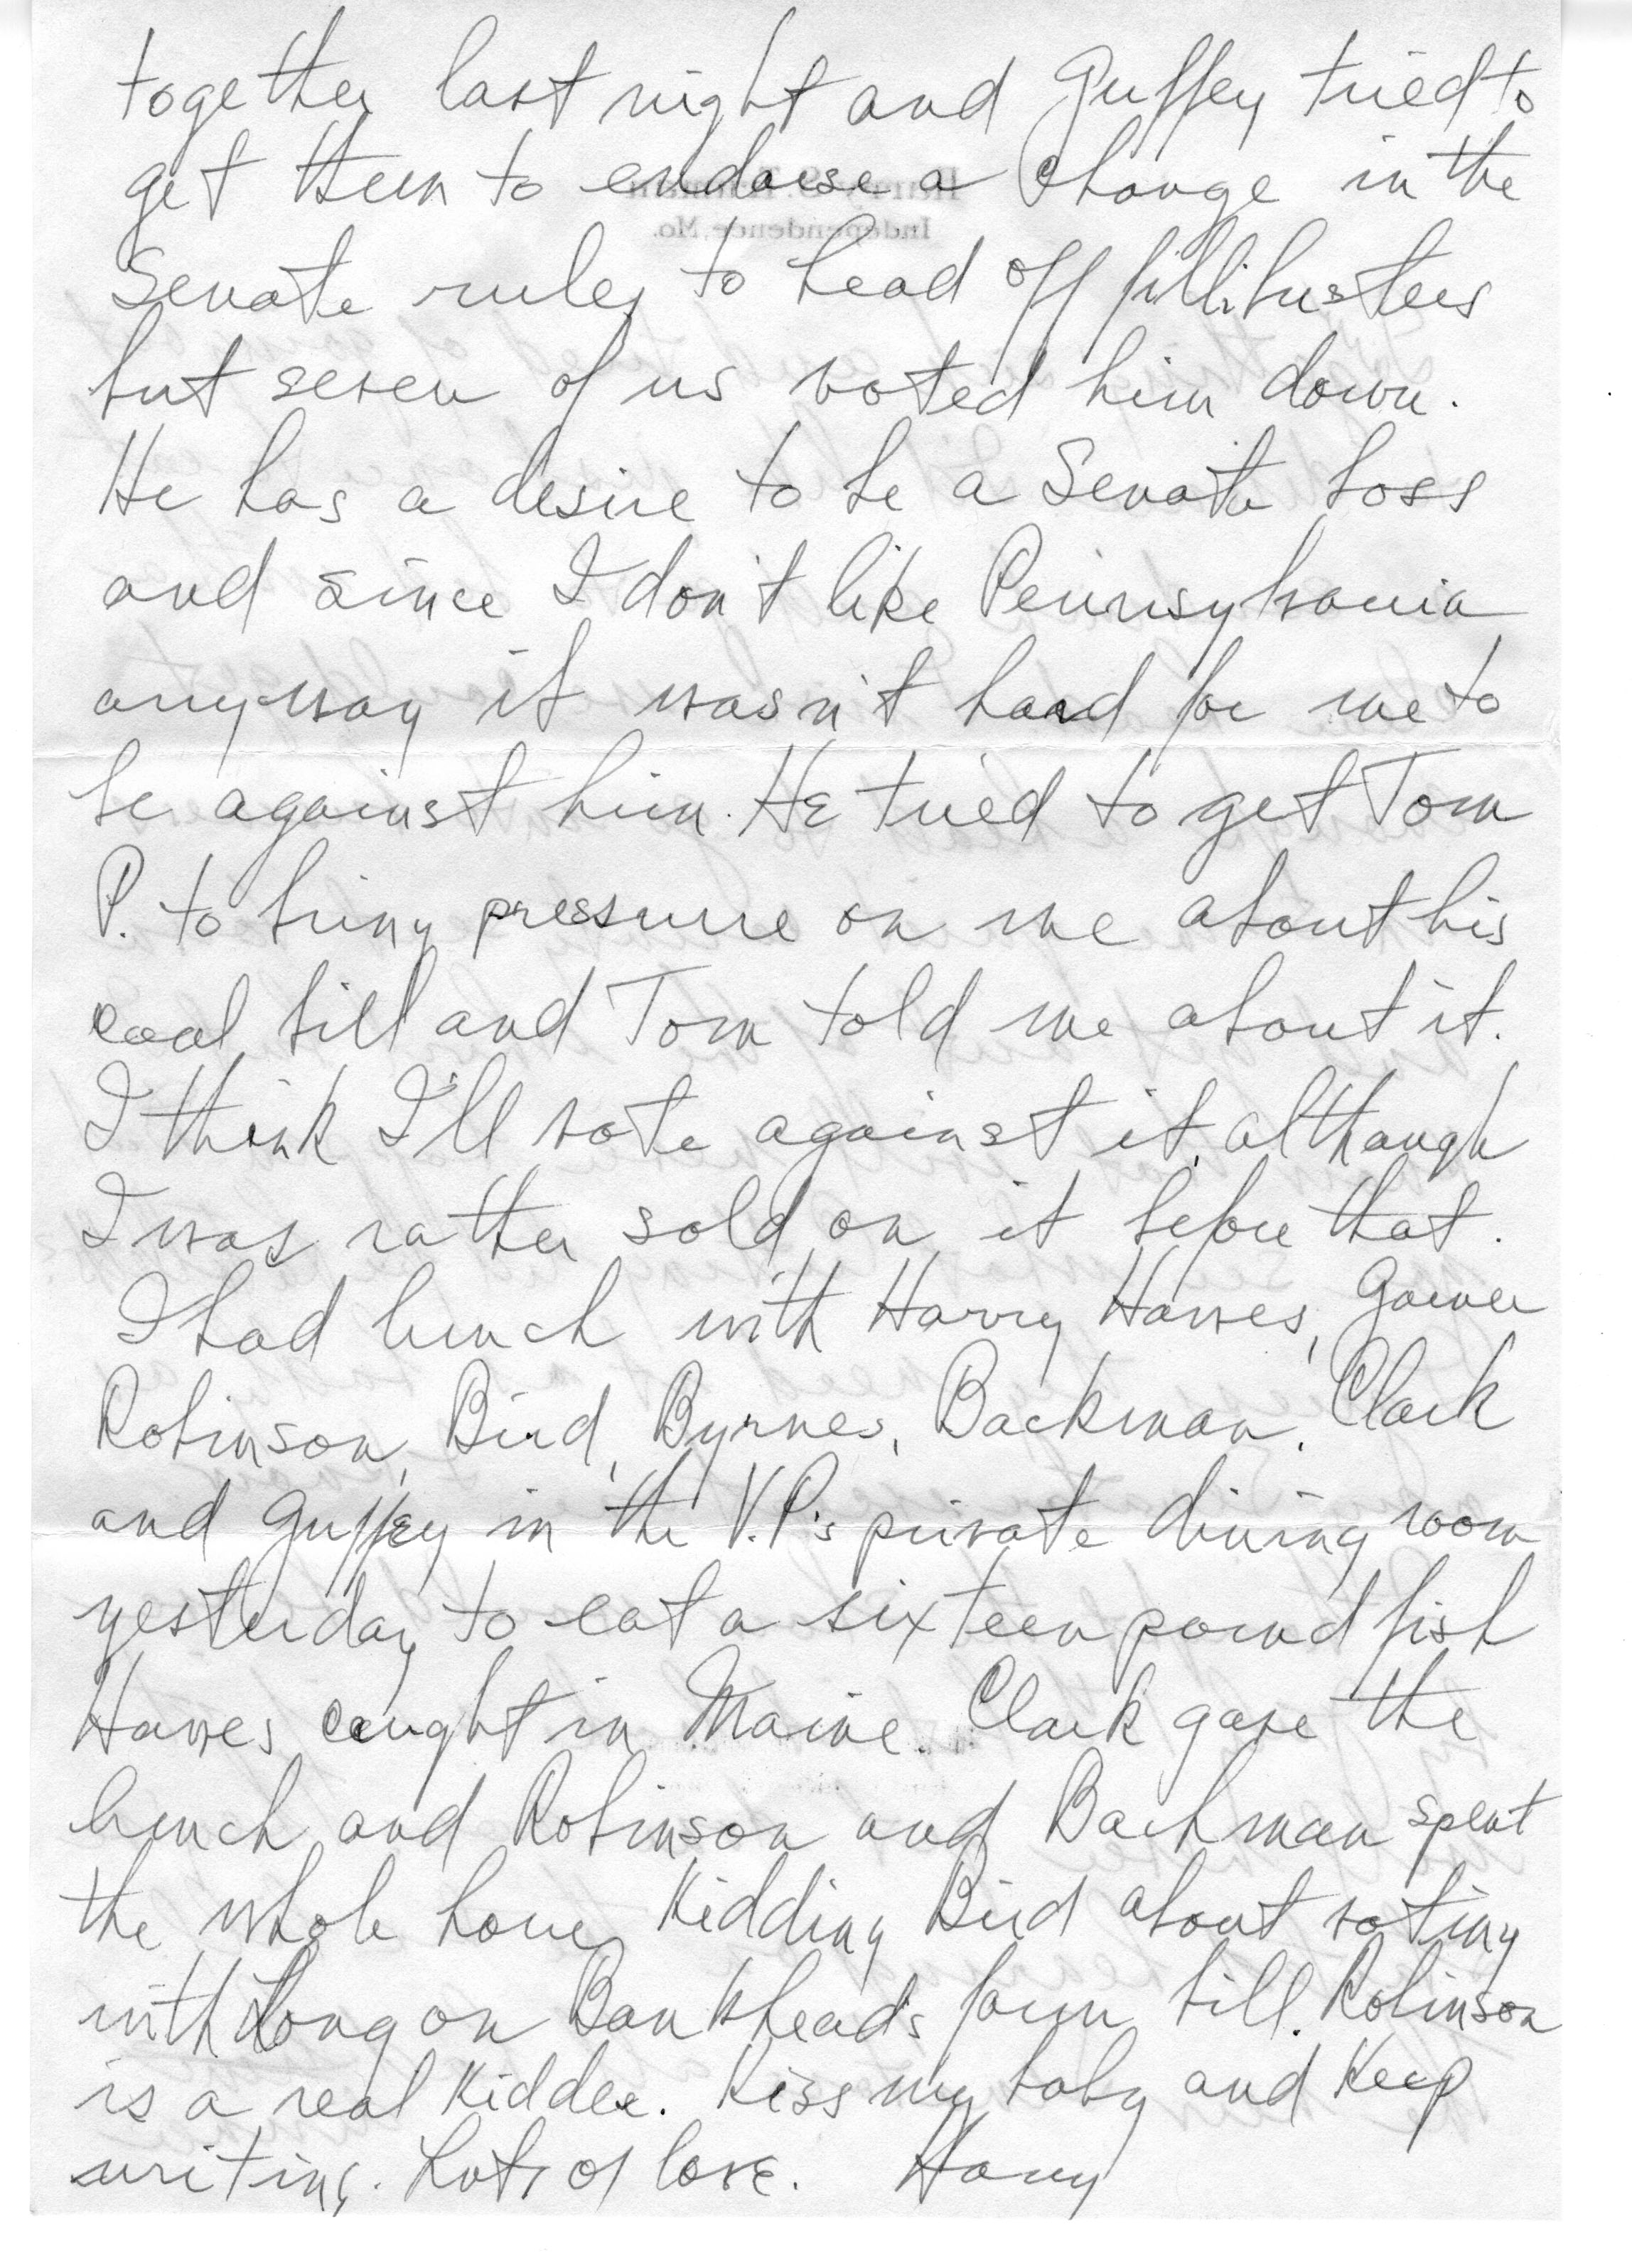 together last night and Guffey tried to
get them to endorse a change in the
Senate rules to head off fillibusters
but seven of us voted him down.
He has a desire to be a Senate boss
and since I don't like Pennsylvania
anyway it wasn't hard for me to
be against him. He tried to get Tom
P. to bring pressure on me about his
coal bill and Tom told me about it.
I think I'll vote against it, although
I was rather sold on it before that.
I had lunch with Harry Hawes, Garner
Robinson, Bird, Byrnes, Backman, Clark
and Guffey in the V.P.'s private dining room
yesterday to eat a sixteen pound fish
Hawes caught in Maine. Clark gave the
lunch and Robinson and Bachman spent
the whole hour kidding Bird about voting
with Long on Bankhead's farm bill. Robinson
is a real kidder. Kiss my baby and keep
writing. Lots of love. Harry
Harry S. Truman
Independence, Mo.